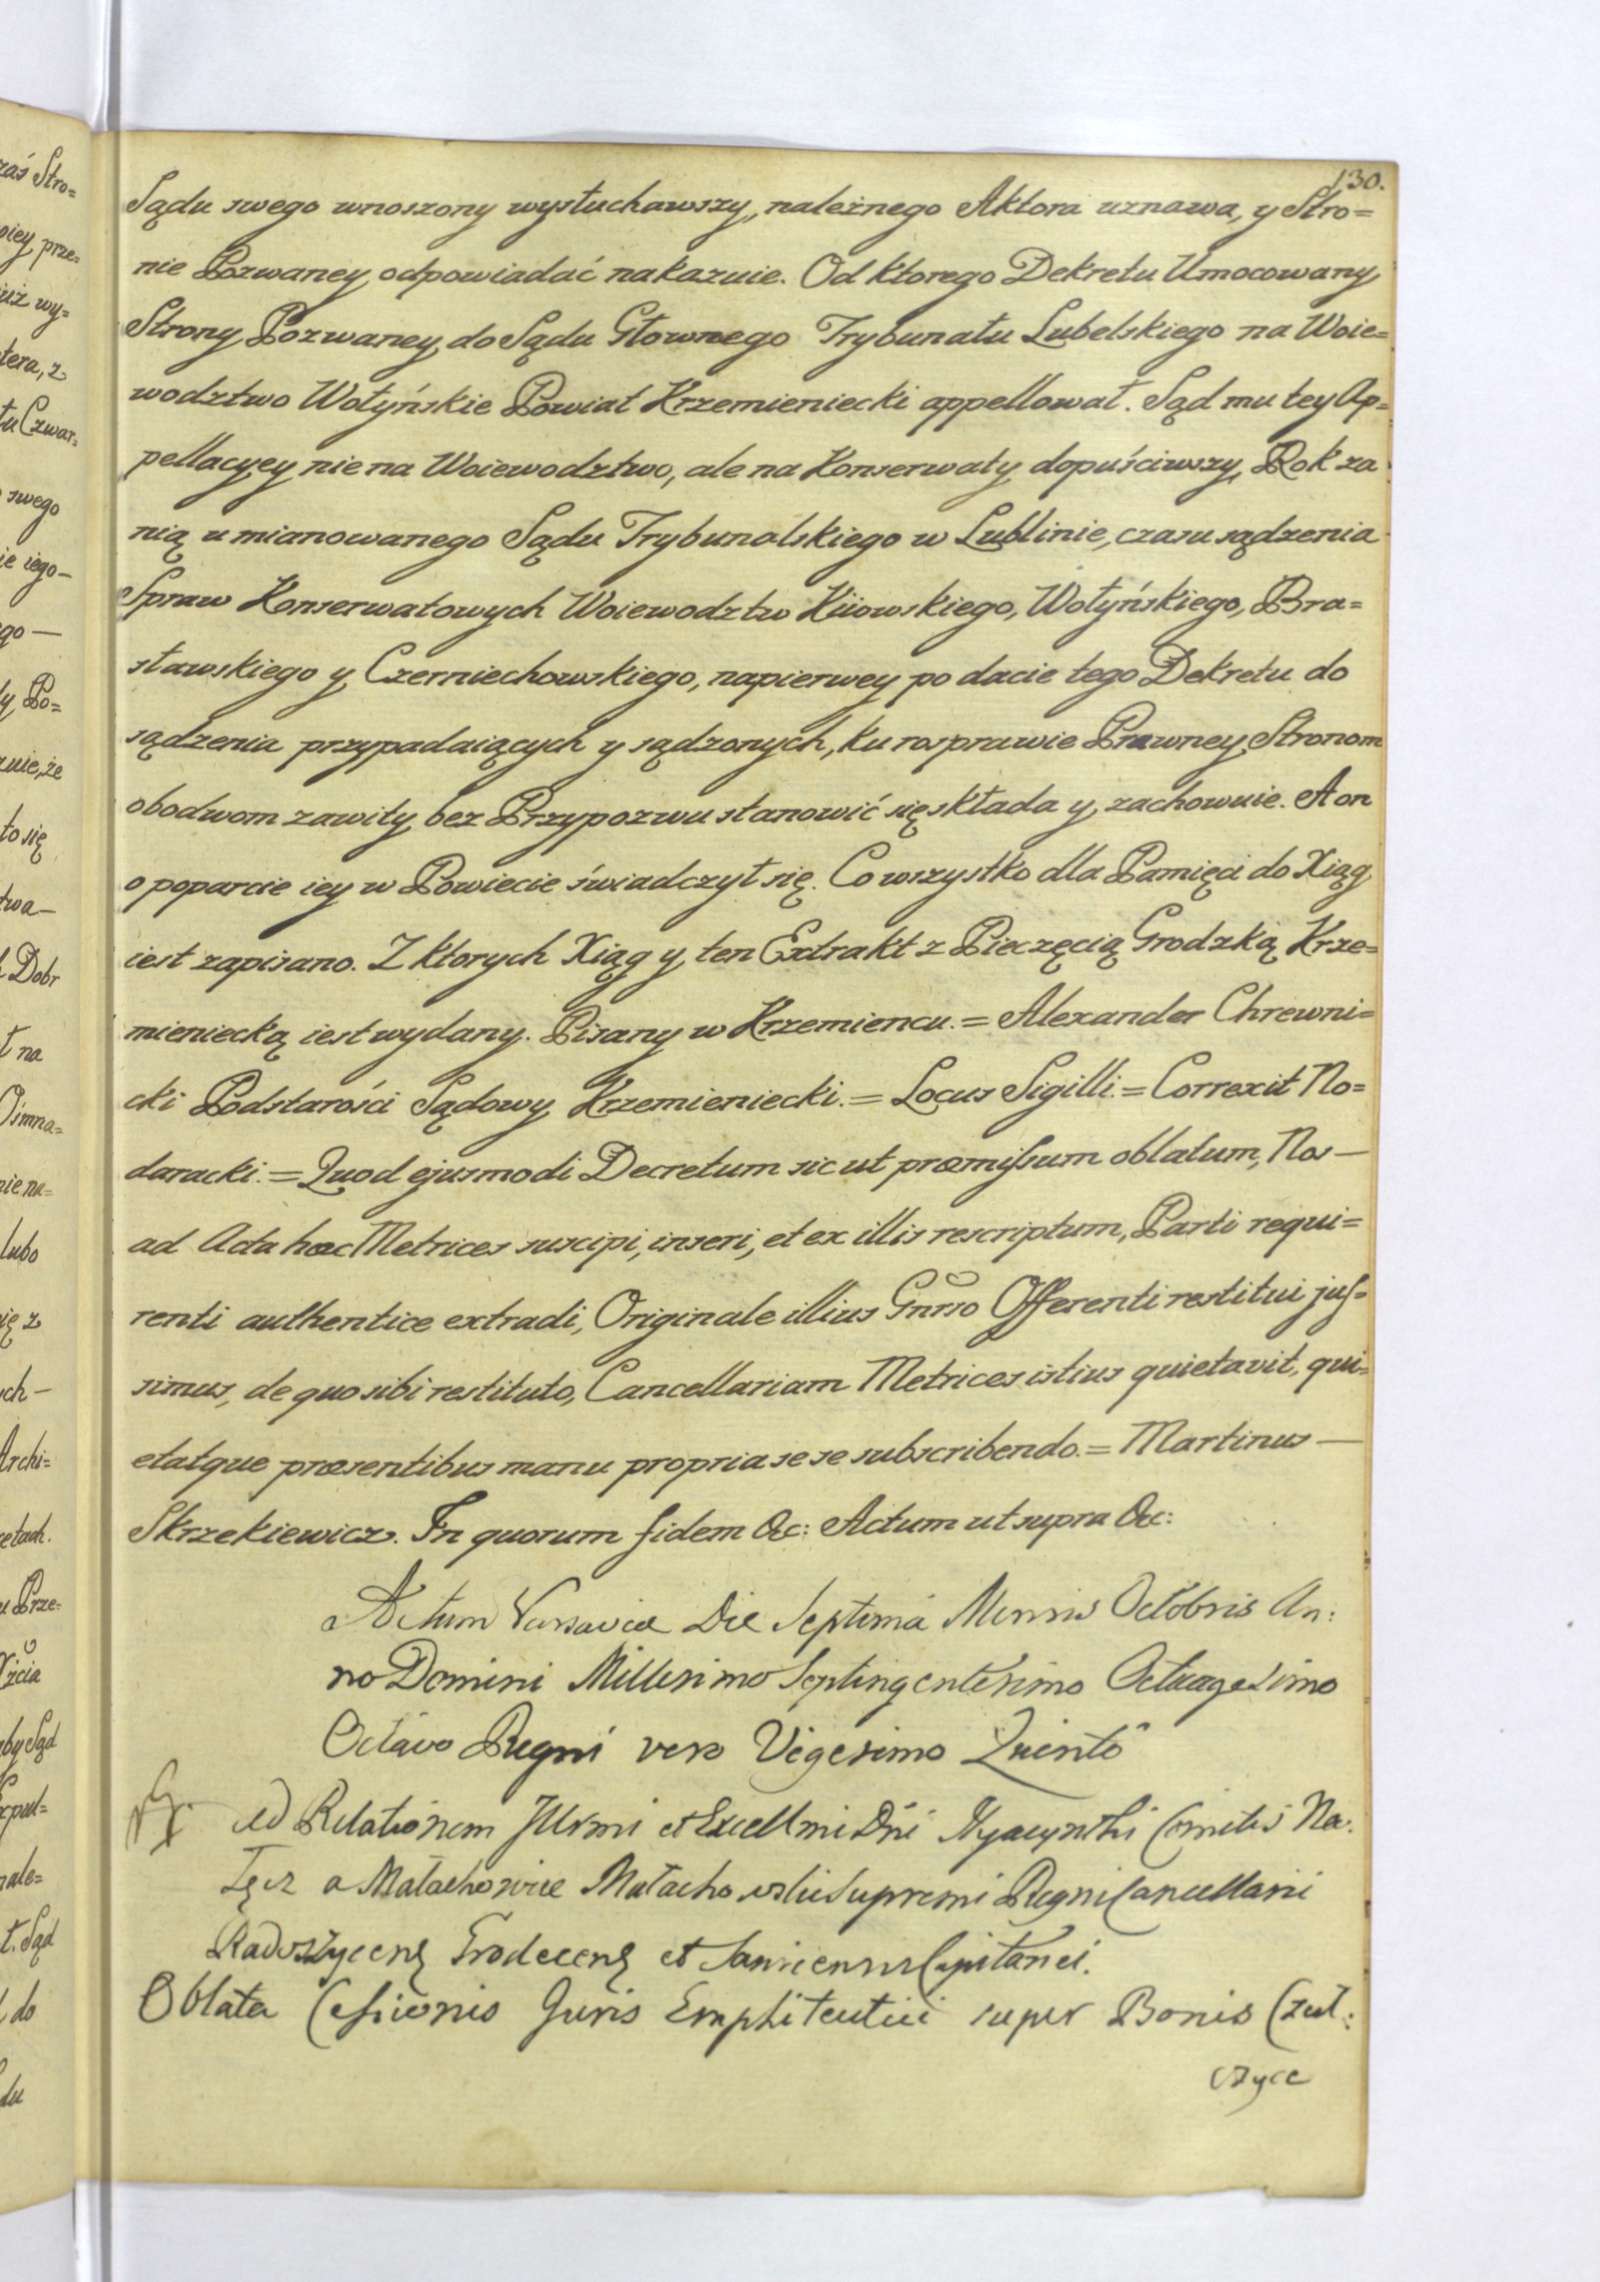 130.
Sądu swego wnoszony wysłuchawszy, należnego Aktora uznawa, y Stro=
nie Pozwaney odpowiadać nakazuie. Od ktorego Dekretu Umocowany
Strony Pozwaney do Sądu Głownego Trybunału Lubelskiego na Woie=
wodztwo Wołyńskie Powiat Krzemieniecki appellował. Sąd mu tey Ap=
pellacyey nie na Woiewodztwo, ale na Konserwaty dopuściwszy, Rok za
nią umianowanego Sądu Trybunalskiego w Lublinie, czasu sądzenia
Spraw Konserwatowych Woiewodztw Kiiowskiego, Wołyńskiego, Bra=
sławskiego y Czerniechowskiego, napierwey po dacie tego Dekretu do
sądzenia przypadaiących y sądzonych, ku rosprawie Prawney Stronom
obodwom zawity bez Przypozwu stanowić się składa y zachowuie. A on
o poparcie iey w Powiecie świadczył się. Co wszystko dla Pamięci do Xiąg
iest zapisano. Z ktorych Xiąg y ten Extrakt z Pieczęcią Grodzką Krze=
mieniecką iest wydany. Pisany w Krzemiencu. = Alexander Chrewni=
cki Podstarości Sądowy Krzemieniecki. = Locus Sigilli. = Correxit No=
daracki. = Quod ejusmodi Decretum sic ut præmissum oblatum, Nos —
ad Acta hæc Metrices suscipi, inseri, et ex illis rescriptum, Parti requi=
renti authentice extradi, Originale illius Gnrso Offerenti restitui jus=
simus, de quo sibi restituto, Cancellariam Metrices istius quietavit, qui=
etatque præsentibus manu propria se se subscribendo. = Martinus —
Skrzekiewicz. In quorum fidem &c: Actum ut supra &c:
Actum Varsaviæ Die Septima Mensis Octobris An:
no Domini Millesimo Septingentesimo Octuagesimo
Octavo Regni vero Vigesimo Quinto
Ad Relationem Illrmi et Excellmi Dni Hyacynthi Comitis Na:
łęcz a Małachowice Małachowski Supremi Regni Cancellarii
Grodecens et Capitanei.
Oblata Cessionis Juris Emphiteutici super Bonis Czuł:
czyce
zaś Stro=
prze=
już wy=
tera, z
Czwar=
swego
ie iego —
ego —
y Po=
że
to się
twa —
Dobr
ł na
lubo
ię z
ych —
Archi=
etach.
Prze=
by Sąd
nale=
t. Sąd
do
du